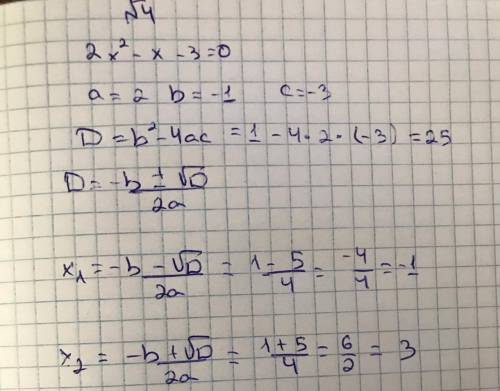 №4
2x² - x - 3 = 0
a = 2 b = -1 c = -3
D = b² - 4ac = 1 - 4 · 2 · (-3) = 25
D = -b ± √D / 2a
x₁ = -b - √D / 2a = 1 - 5 / 4 = -4 / 4 = -1
x₂ = -b + √D / 2a = 1 + 5 / 4 = 6 / 2 = 3